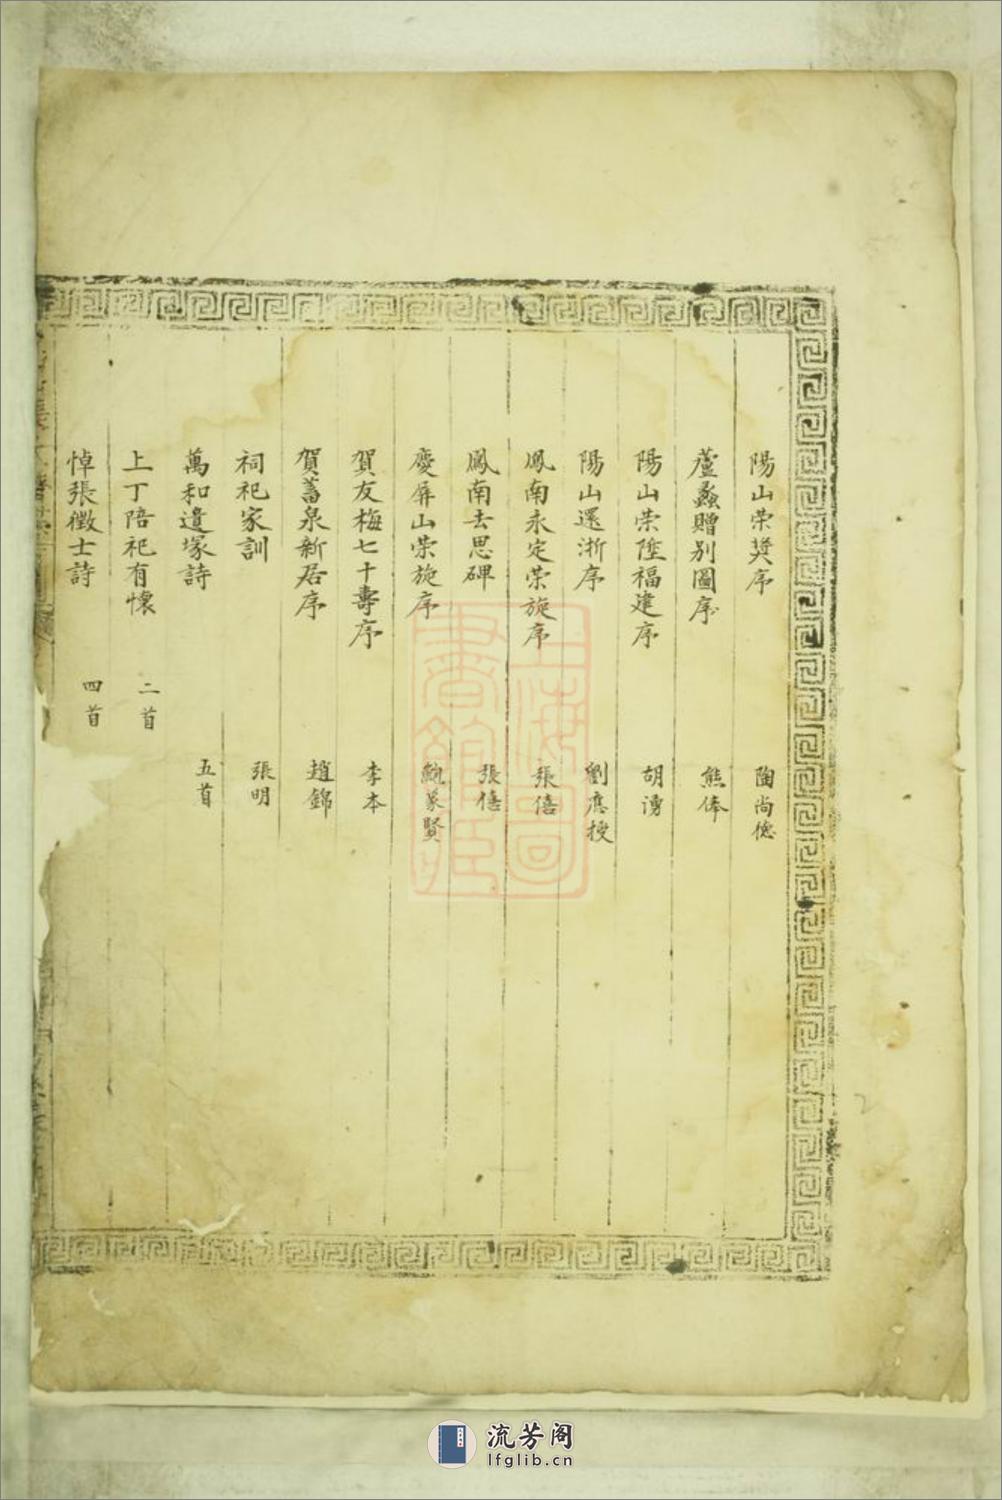 陽山荣奨序 陶尚德
蘆蠡贈别圖序 熊俸
陽山荣陞福建序 胡湧
陽山還浙序 劉應授
鳳南永定荣旋序 張僖
鳳南去思碑 張僖
慶屏山荣旋序 鮑象賢
賀友梅七十壽序 李本
賀蓄泉新居序 趙錦
祠祀家訓 張明
萬和遺塚詩 五首
上丁陪祀有懷 二首
悼張徵士詩 四首
上海圖書館藏
流芳阁
lfglib.cn